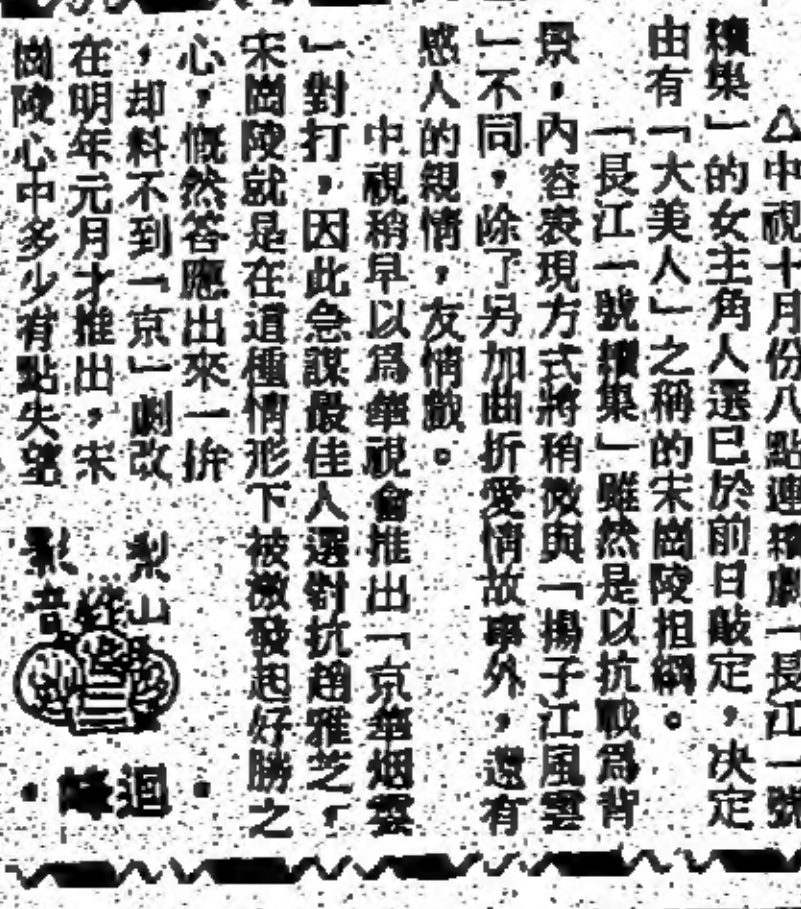 △中視十月份八點連續劇「長江一號
續集」的女主角人選已於前日敲定，決定
由有「大美人」之稱的宋岡陵担綱。
「長江一號續集」雖然是以抗戰爲背
景，內容表現方式將稍微與「揚子江風雲
」不同，除了另加曲折愛情故事外，還有
感人的親情，友情戲。
中視稍早以爲華視會推出「京華烟雲
」對打，因此急謀最佳人選對抗趙雅芝，
宋岡陵就是在這種情形下被激發起好勝之
心，慨然答應出來一拚
，却料不到「京」劇改
在明年元月才推出，宋
岡陵心中多少有點失望
梨山
影音
・迴峰・